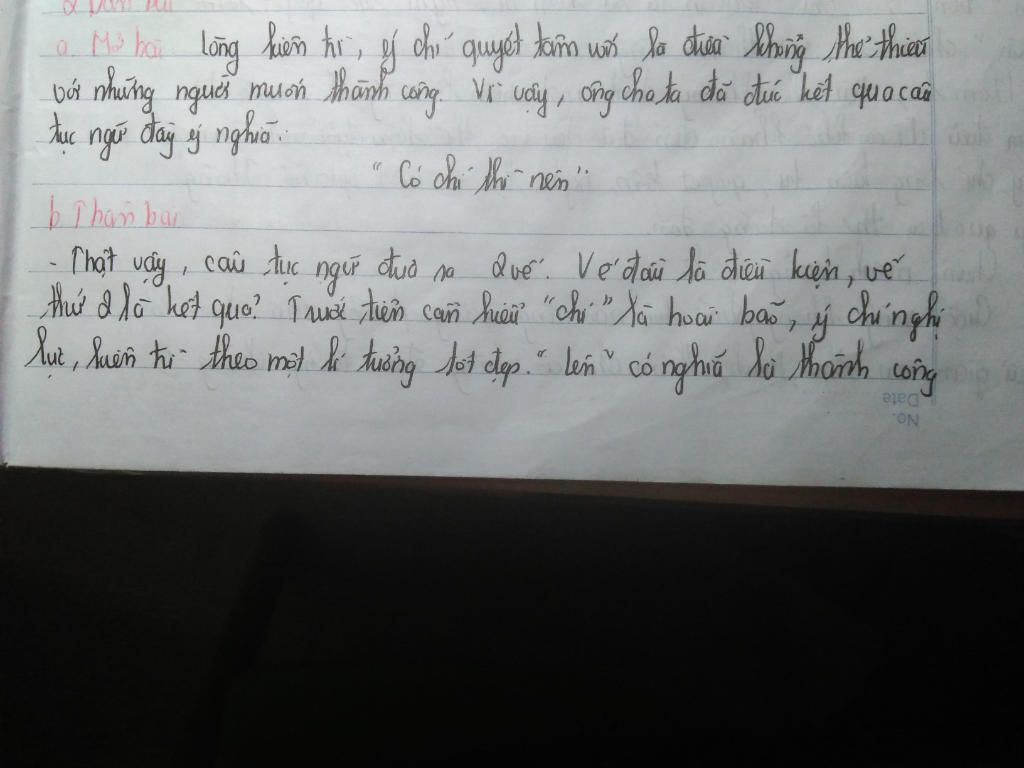 2 Dàn bài
a. Mở bài Lòng kiên trì, ý chí quyết tâm vốn là điều không thể thiếu
với những người muốn thành công. Vì vậy, ông cha ta đã đúc kết qua câu
tục ngữ đầy ý nghĩa:
"Có chí thì nên".
b Thân bài
- Thật vậy, câu tục ngữ đưa ra 2 vế. Vế đầu là điều kiện, vế
thứ 2 là kết quả? Trước tiên cần hiểu "chí" là hoài bão, ý chí nghị
lực, kiên trì theo một lí tưởng tốt đẹp. "lên" có nghĩa là thành công
No.
Date